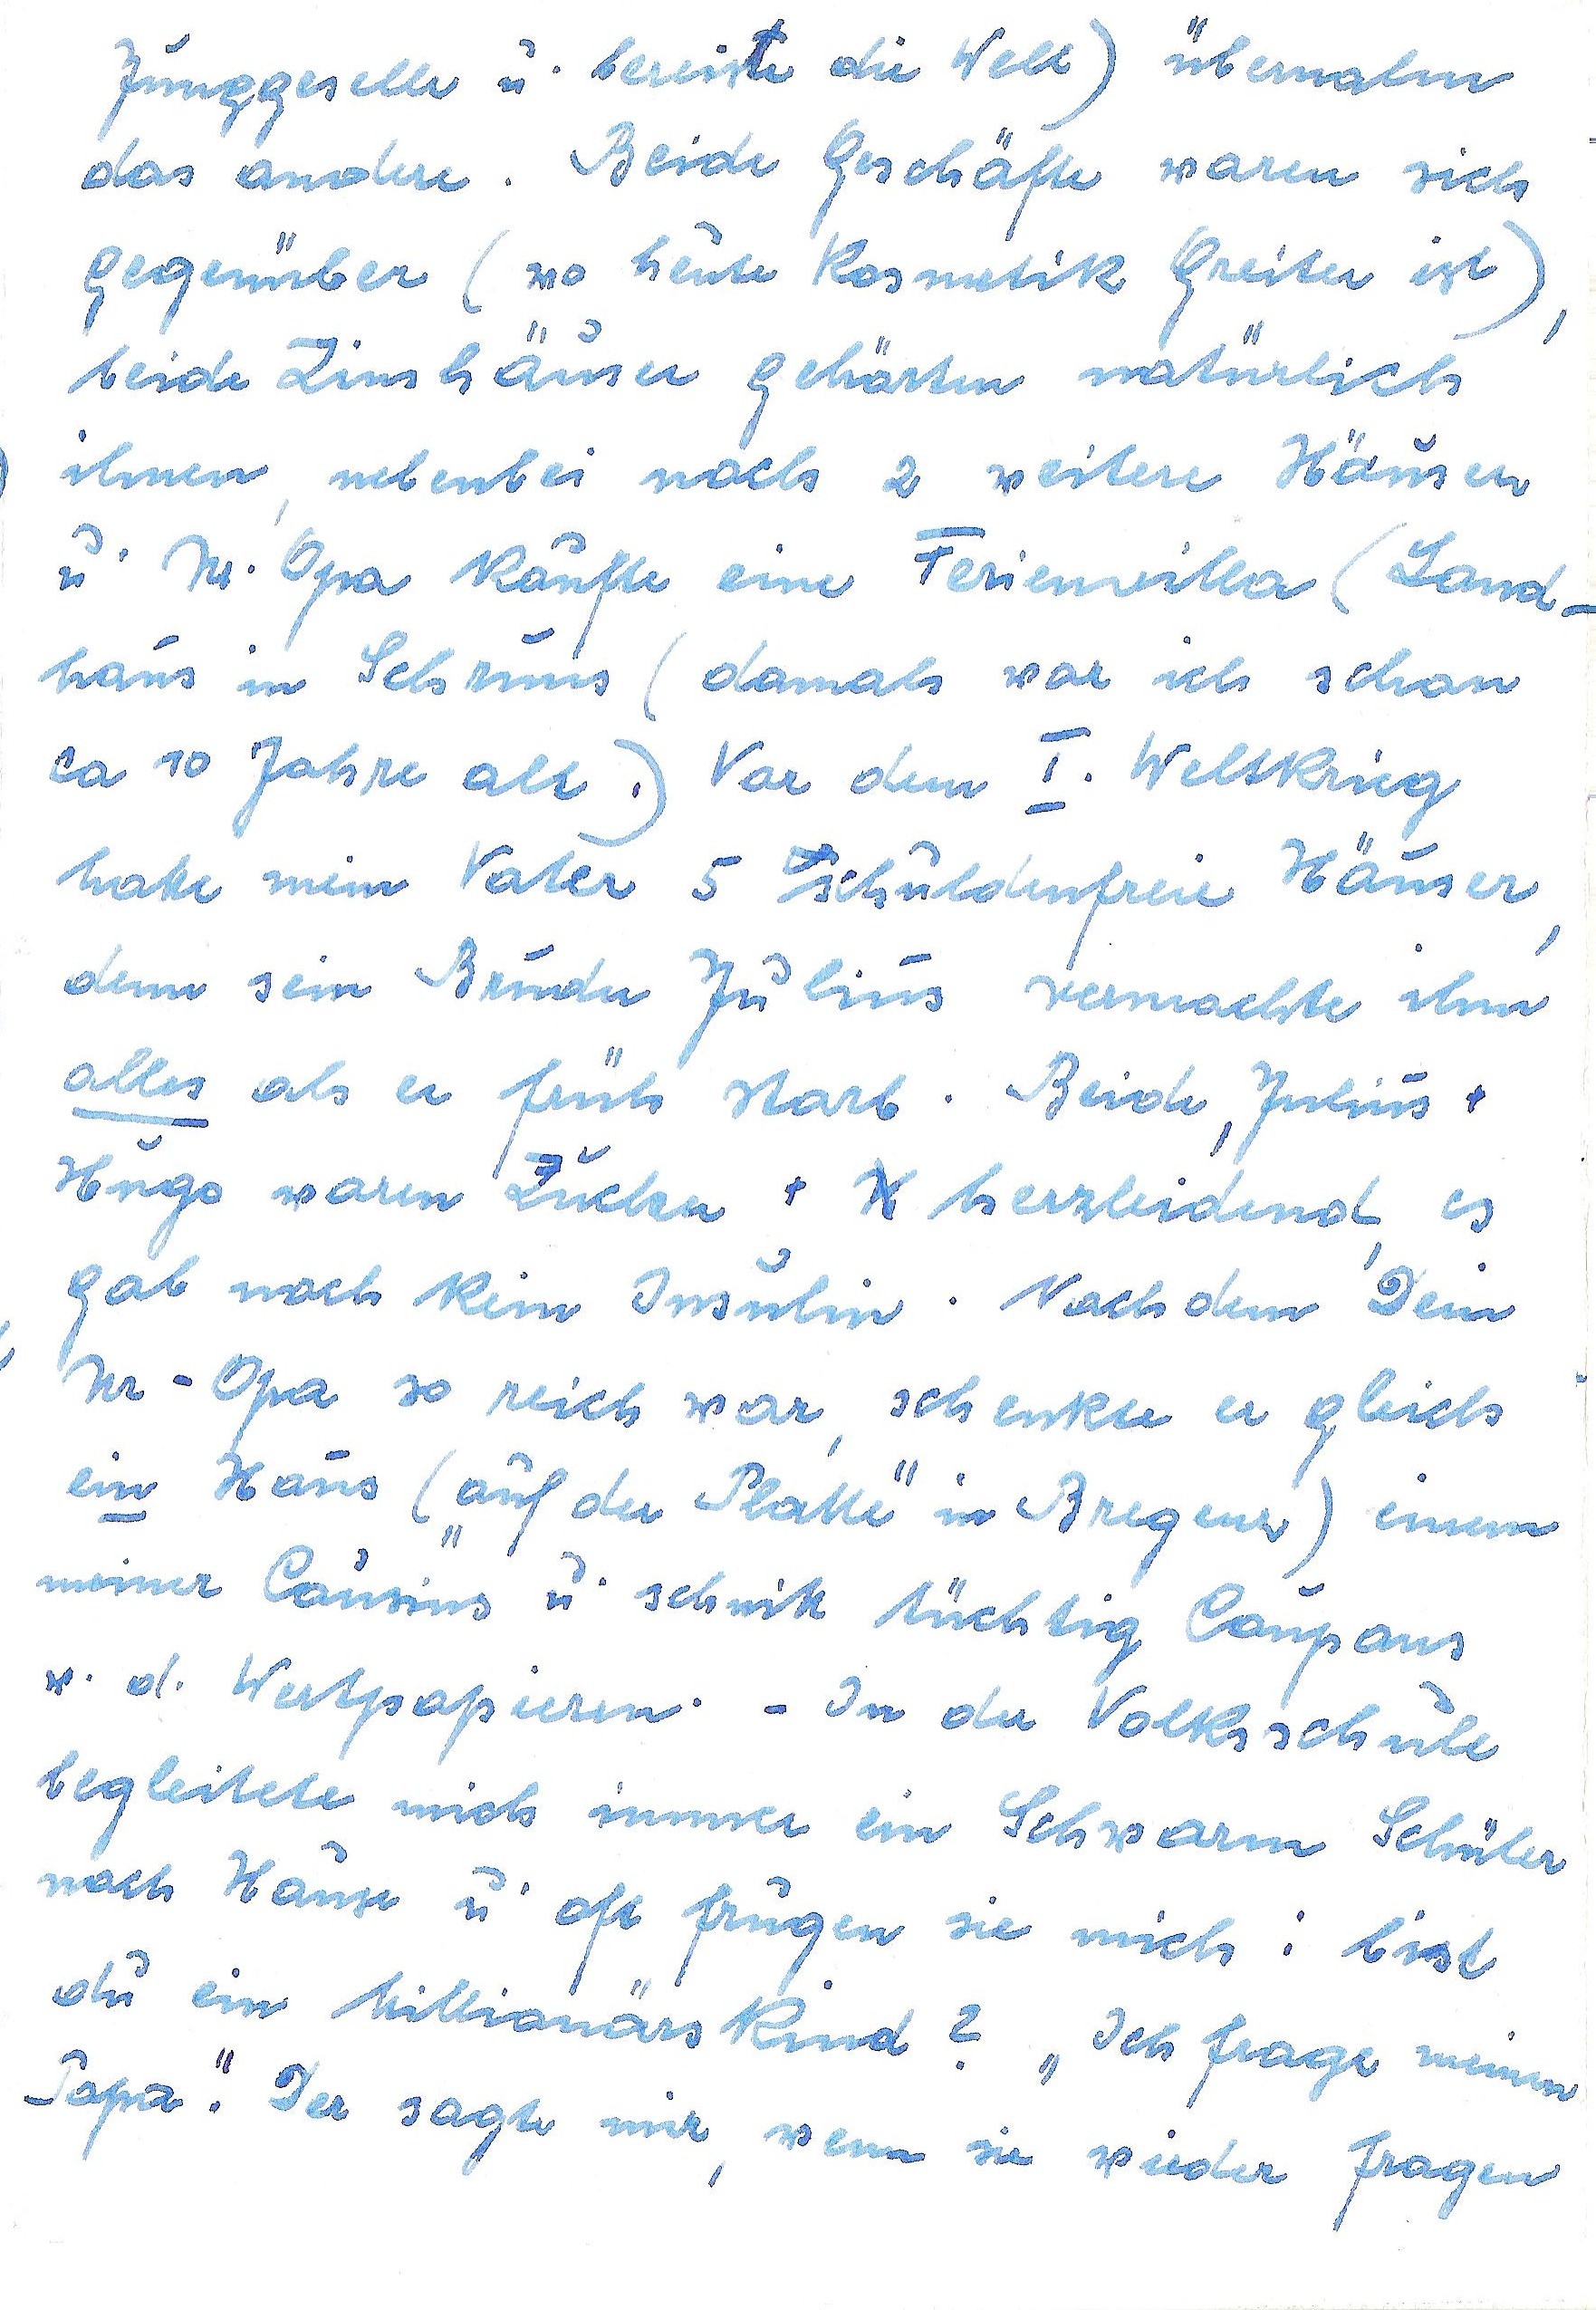 Junggeselle u. bereiste die Welt) übernahm
das andere. Beide Geschäfte waren sich
gegenüber (wo heute Kosmetik Greiter ist),
beide Zinshäuser gehörten natürlich
ihnen, nebenbei noch 2 weitere Häuser
u. Ur. Opa kaufte eine Ferienvilla (Land-
haus in Schruns (damals war ich schon
ca 10 Jahre alt.) Vor dem I. Weltkrieg
hatte mein Vater 5 schuldenfreie Häuser,
denn sein Bruder Julius vermachte ihm
alles als er früh starb. Beide, Julius +
Hugo waren Zucker + herzleidend, es
gab noch kein Insulin. Nachdem Dein
Ur-Opa so reich war, schenkte er gleich
ein Haus („auf der Platte" in Bregenz) einem
meiner Cousins u. schnitt tüchtig Coupons
v. d. Wertpapieren. - In der Volksschule
begleitete mich immer ein Schwarm Schüler
nach Hause u. oft frugen sie mich: bist
du ein Millionärskind? „Ich frage meinen
Papa". Der sagte mir, wenn sie wieder fragen